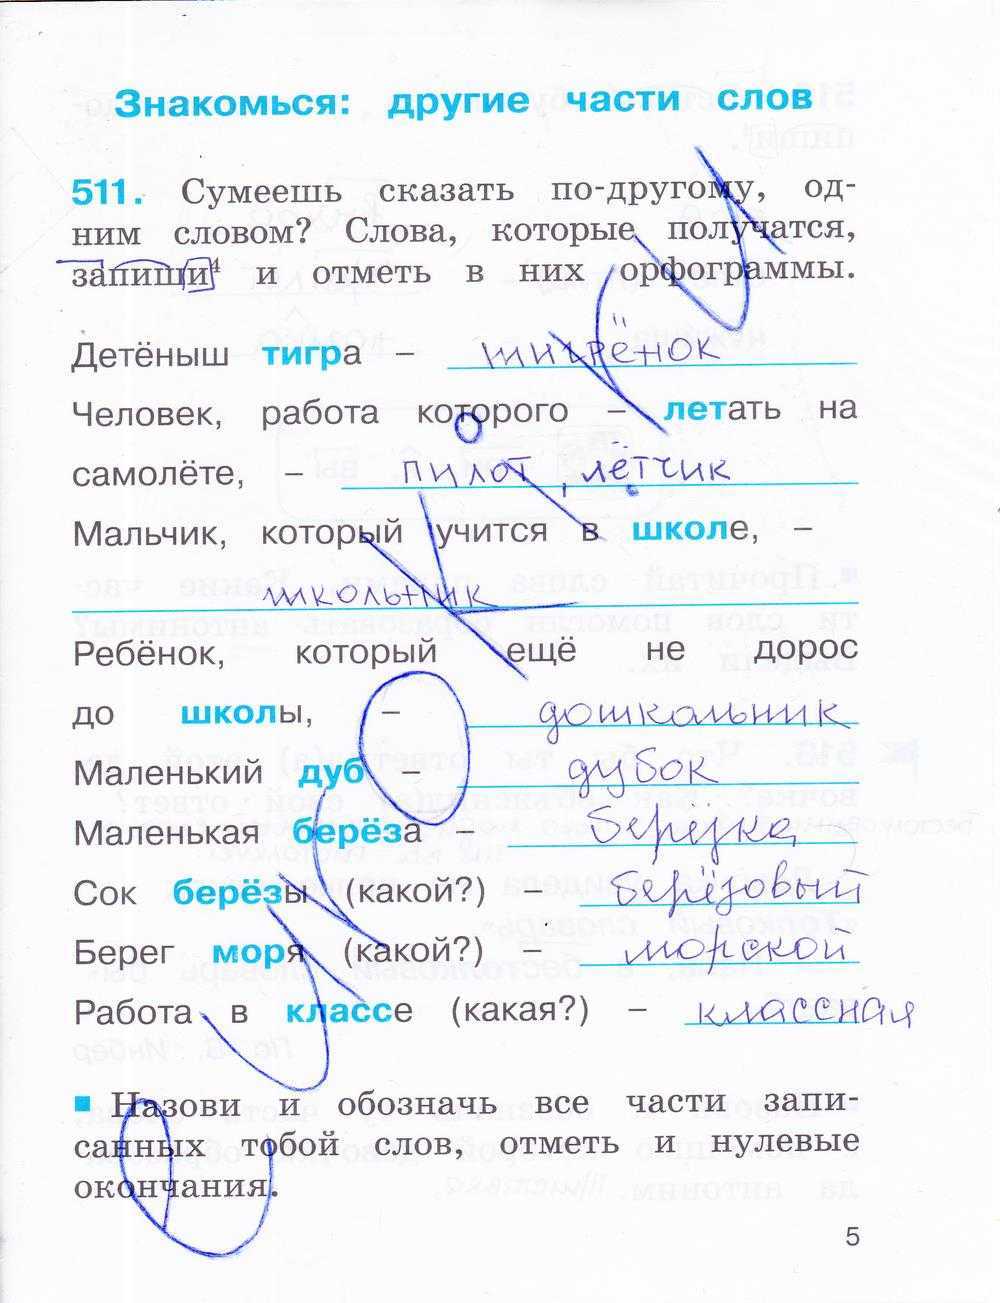 Знакомься: другие части слов
511. Сумеешь сказать по-другому, од-
ним словом? Слова, которые получатся,
запиши⁴ и отметь в них орфограммы.
Детёныш тигра – тигрёнок
Человек, работа которого – летать на
самолёте, – пилот, лётчик
Мальчик, который учится в школе, –
школьник
Ребёнок, который ещё не дорос
до школы, – дошкольник
Маленький дуб – дубок
Маленькая берёза – берёзка
Сок берёзы (какой?) – берёзовый
Берег моря (какой?) морской
Работа в классе (какая?) – классная
Назови и обозначь все части запи-
санных тобой слов, отметь и нулевые
окончания.
5